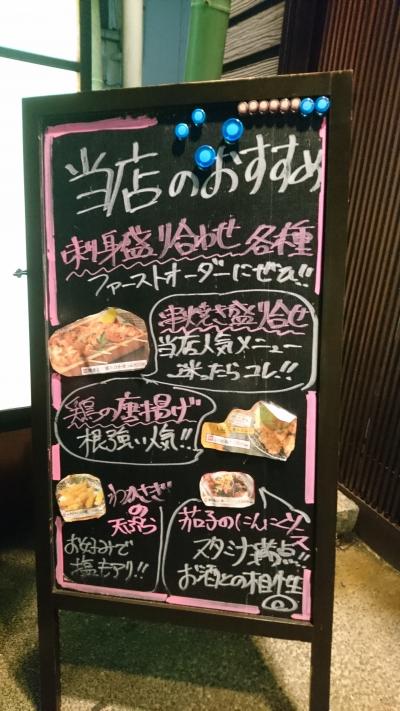 当店のおすすめ
刺身盛り合わせ 各種
ファーストオーダーにぜひ!!
串焼き盛り合せ
当店人気メニュー
迷ったらコレ!!
鶏の唐揚げ
根強い人気!!
わかさぎ
の
天ぷら
お好みで
塩もアリ!!
茄子のにんにくソース
スタミナ満点!!
お酒との相性◎